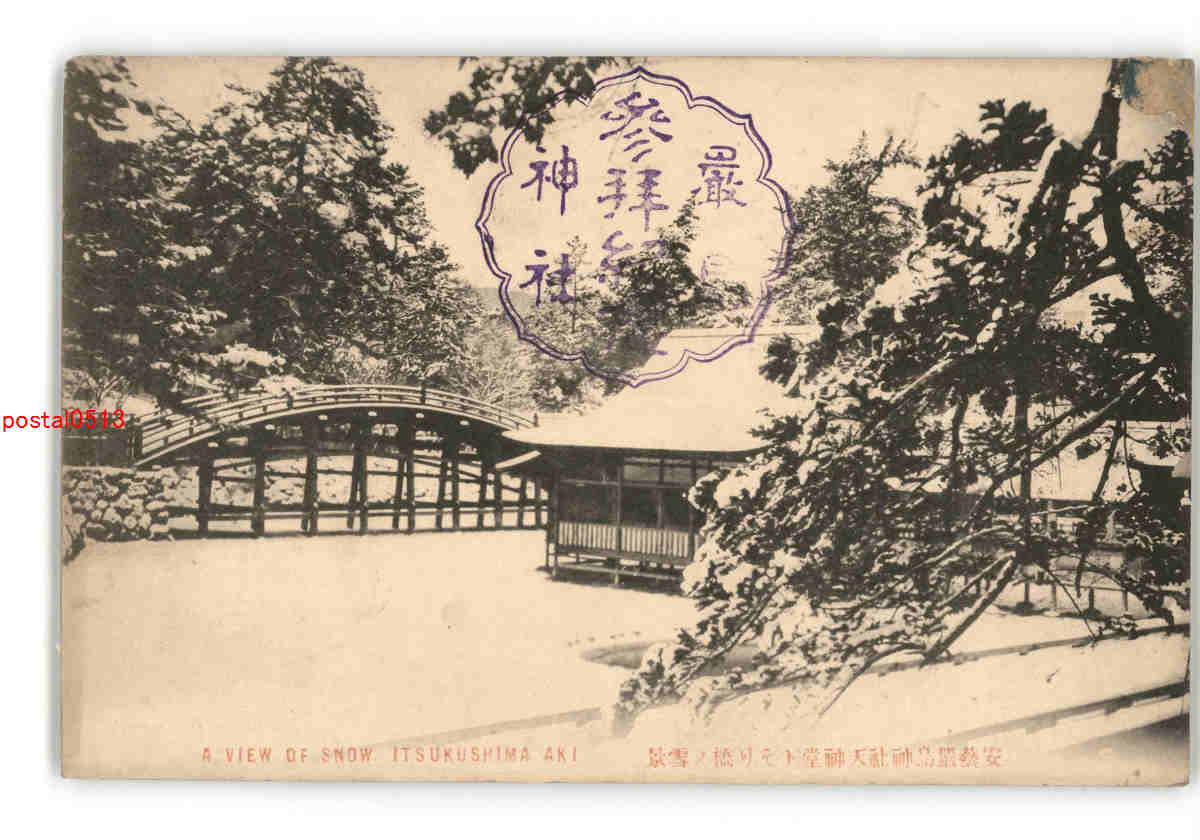 嚴島
神社
參拜紀念
postal0513
A VIEW OF SNOW ITSUKUSHIMA AKI
景雪ノ橋リそト堂神天社神島嚴藝安